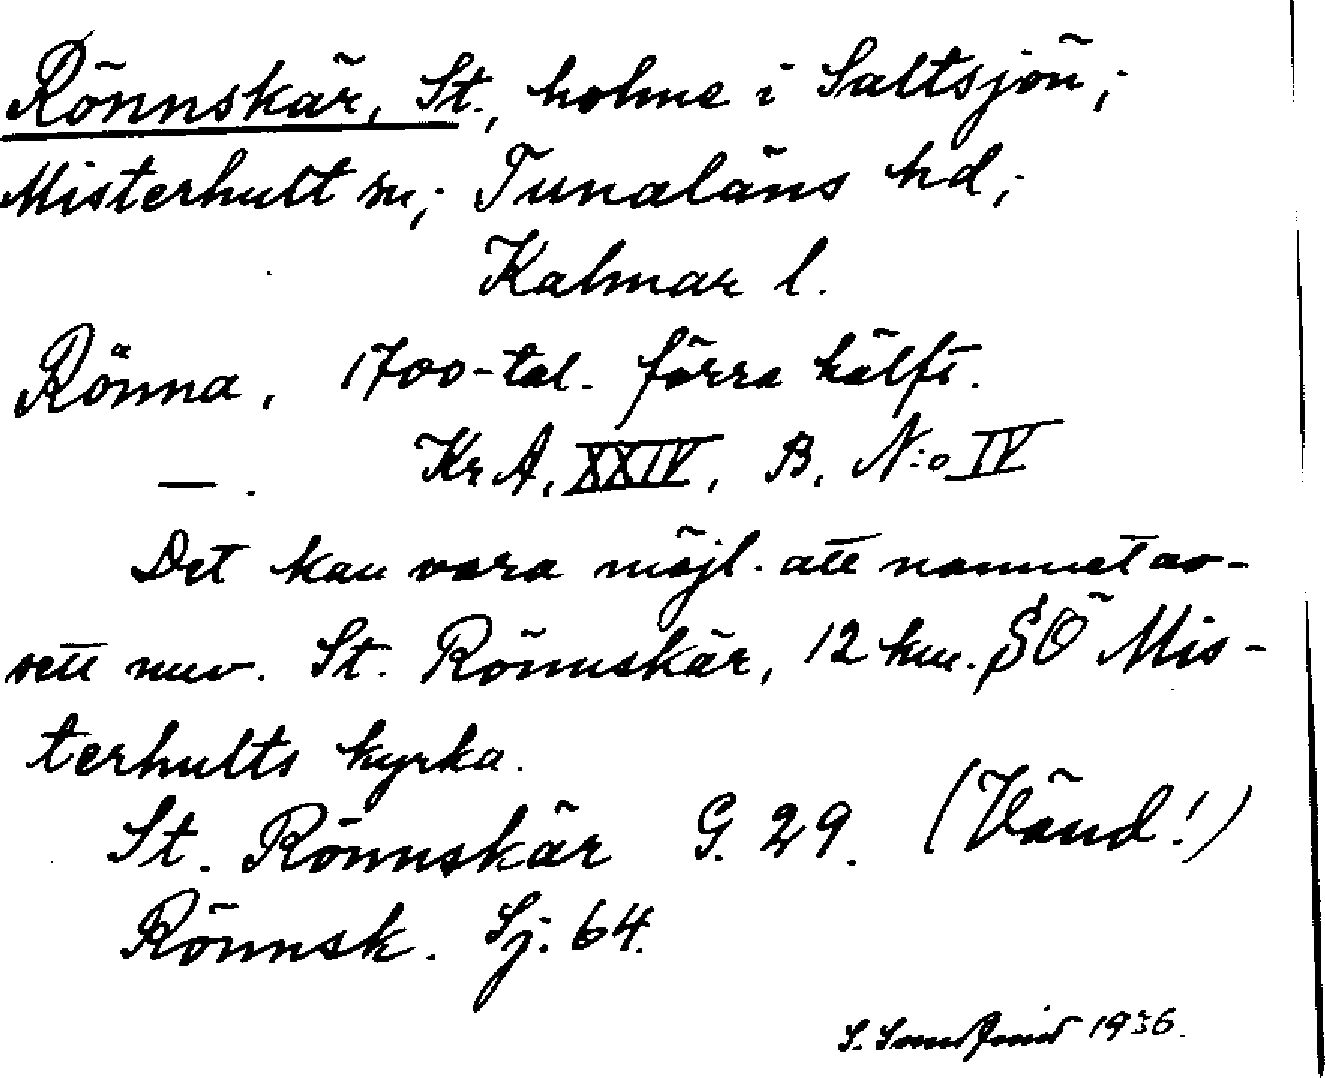 Rönnskär, St., holme i Saltsjön;
Misterhult sn; Tunaläns hd;
Kalmar l.
Rönna, 1700-tal. förra hälft.
—. Kr A, XXIV, B, N:o IV
Det kan vara möjl. att namnet av-
sett nuv. St. Rönnskär, 12 km. SÖ Mis-
terhults kyrka.
St. Rönnskär G. 29. (Vänd!)
Rönnsk. Sj. 64.
S. 1936.